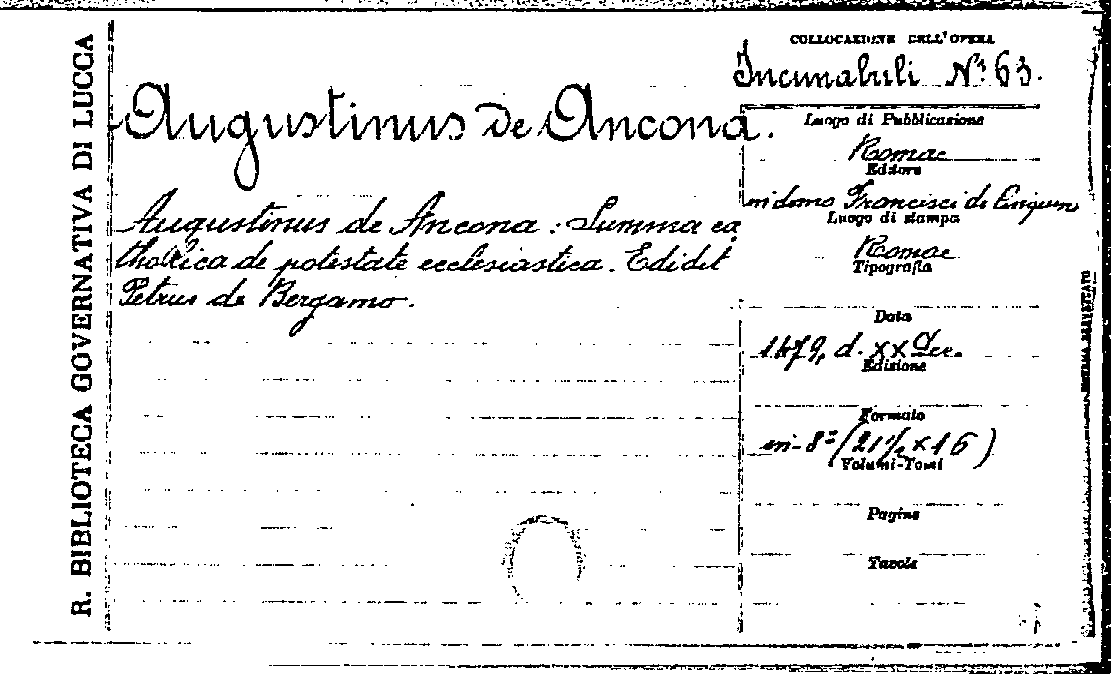 R. BIBLIOTECA GOVERNATIVA DI LUCCA
Augustinus de Ancona.
Augustinus de Ancona: Summa ca
tholica de potestate ecclesiastica. Edidit
Petrus de Bergamo.
COLLOCAZIONE DELL'OPERA
Incunabuli N.º 63.
Luogo di Pubblicazione
Romae
Editore
in domo Francisci de
Luogo di stampa
Romae
Tipografia
Data
1479, d. XX Dec.
Edizione
Formato
in-8º (21½ × 16)
Volumi-Tomi
Pagine
Tavole